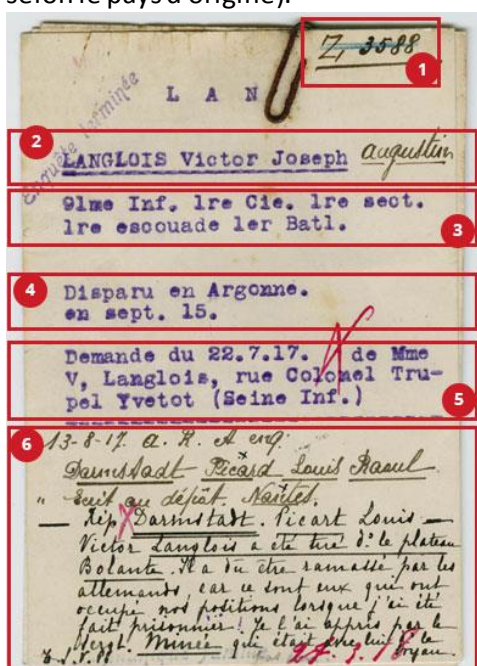 selon le pays d'origine).
Z, 3588
1
L A N
Enquête terminée
2
LANGLOIS Victor Joseph augustin
91me Inf. 1re Cie. 1re sect.
1re escouade 1er Batl.
3
4
Disparu en Argonne.
en sept. 15.
Demande du 22.7.17. de Mme
V, Langlois, rue Colonel Tru-
pel Yvetot (Seine Inf.)
5
6
13-8-17. a. R. A enq.
Darmstadt Picard Louis Raoul
" Écrit au dépôt Nantes.
— Rép Darmstadt. Picart Louis —
Victor Langlois a été tué ds le plateau
Bolante. Il a dû être ramassé par les
allemands, car ce sont eux qui ont
occupé nos positions lorsque j'ai été
fait prisonnier! Je l'ai appris par le
Sergt. Minée qui était avec lui ds le
boyau.